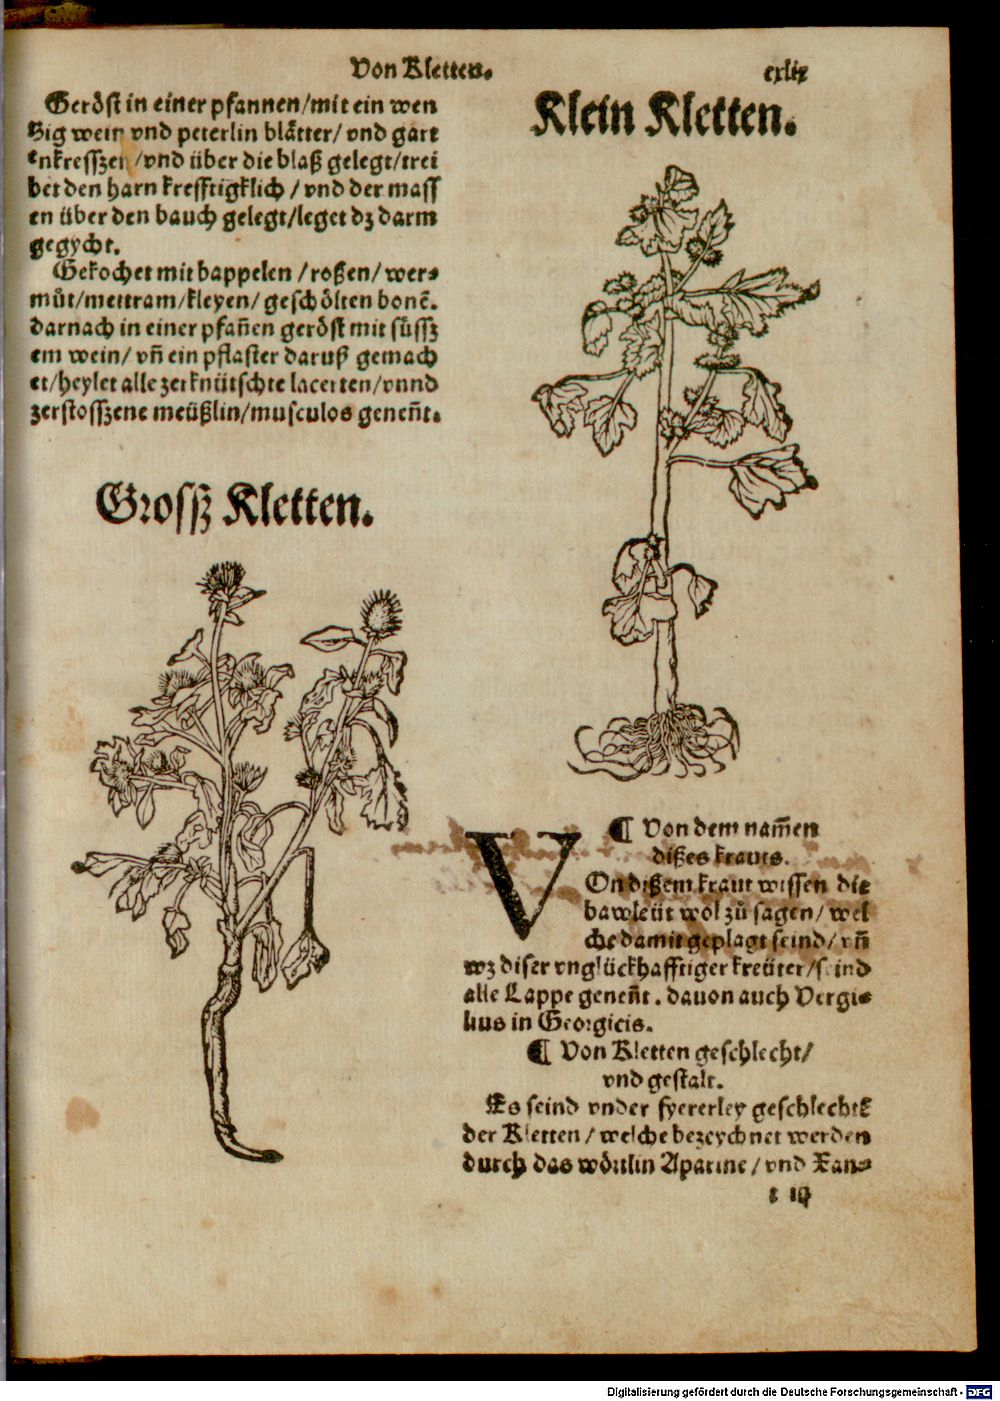 Von Kletten.
cxlix
Geröst in einer pfannen/mit ein wen
zig wein vnd peterlin blätter/ vnd gart
enkressszen /vnd über die blaß gelegt/trei
bet den harn krefftigklich / vnd der mass
en über den bauch gelegt/leget dz darm
gegycht.
Gekochet mit bappelen /roßen/ wer⸗
můt/mettram/kleyen/ geschölten bonē.
darnach in einer pfañen geröst mit süssz
em wein/ vñ ein pflaster daruß gemach
et/heylet alle zerknütschte lacerten/vnnd
zerstosszene meüßlin/musculos geneñt.
Grossz Kletten.
Klein Kletten.
¶ Von dem nam̄en
dißes krauts.
VOn dißem kraut wissen die
bawleüt wol zů sagen/ wel
che damit geplagt seind/ vñ
wz diser vnglückhafftiger kreüter/seind
alle Lappe geneñt. dauon auch Vergi⸗
lius in Georgicis.
¶ Von Kletten geschlecht/
vnd gestalt.
Es seind vnder fyererley geschlecht
der Kletten/ welche bezeychnet werden
durch das wörtlin Aparine/ vnd Xan⸗
Digitalisierung gefördert durch die Deutsche Forschungsgemeinschaft - DFG